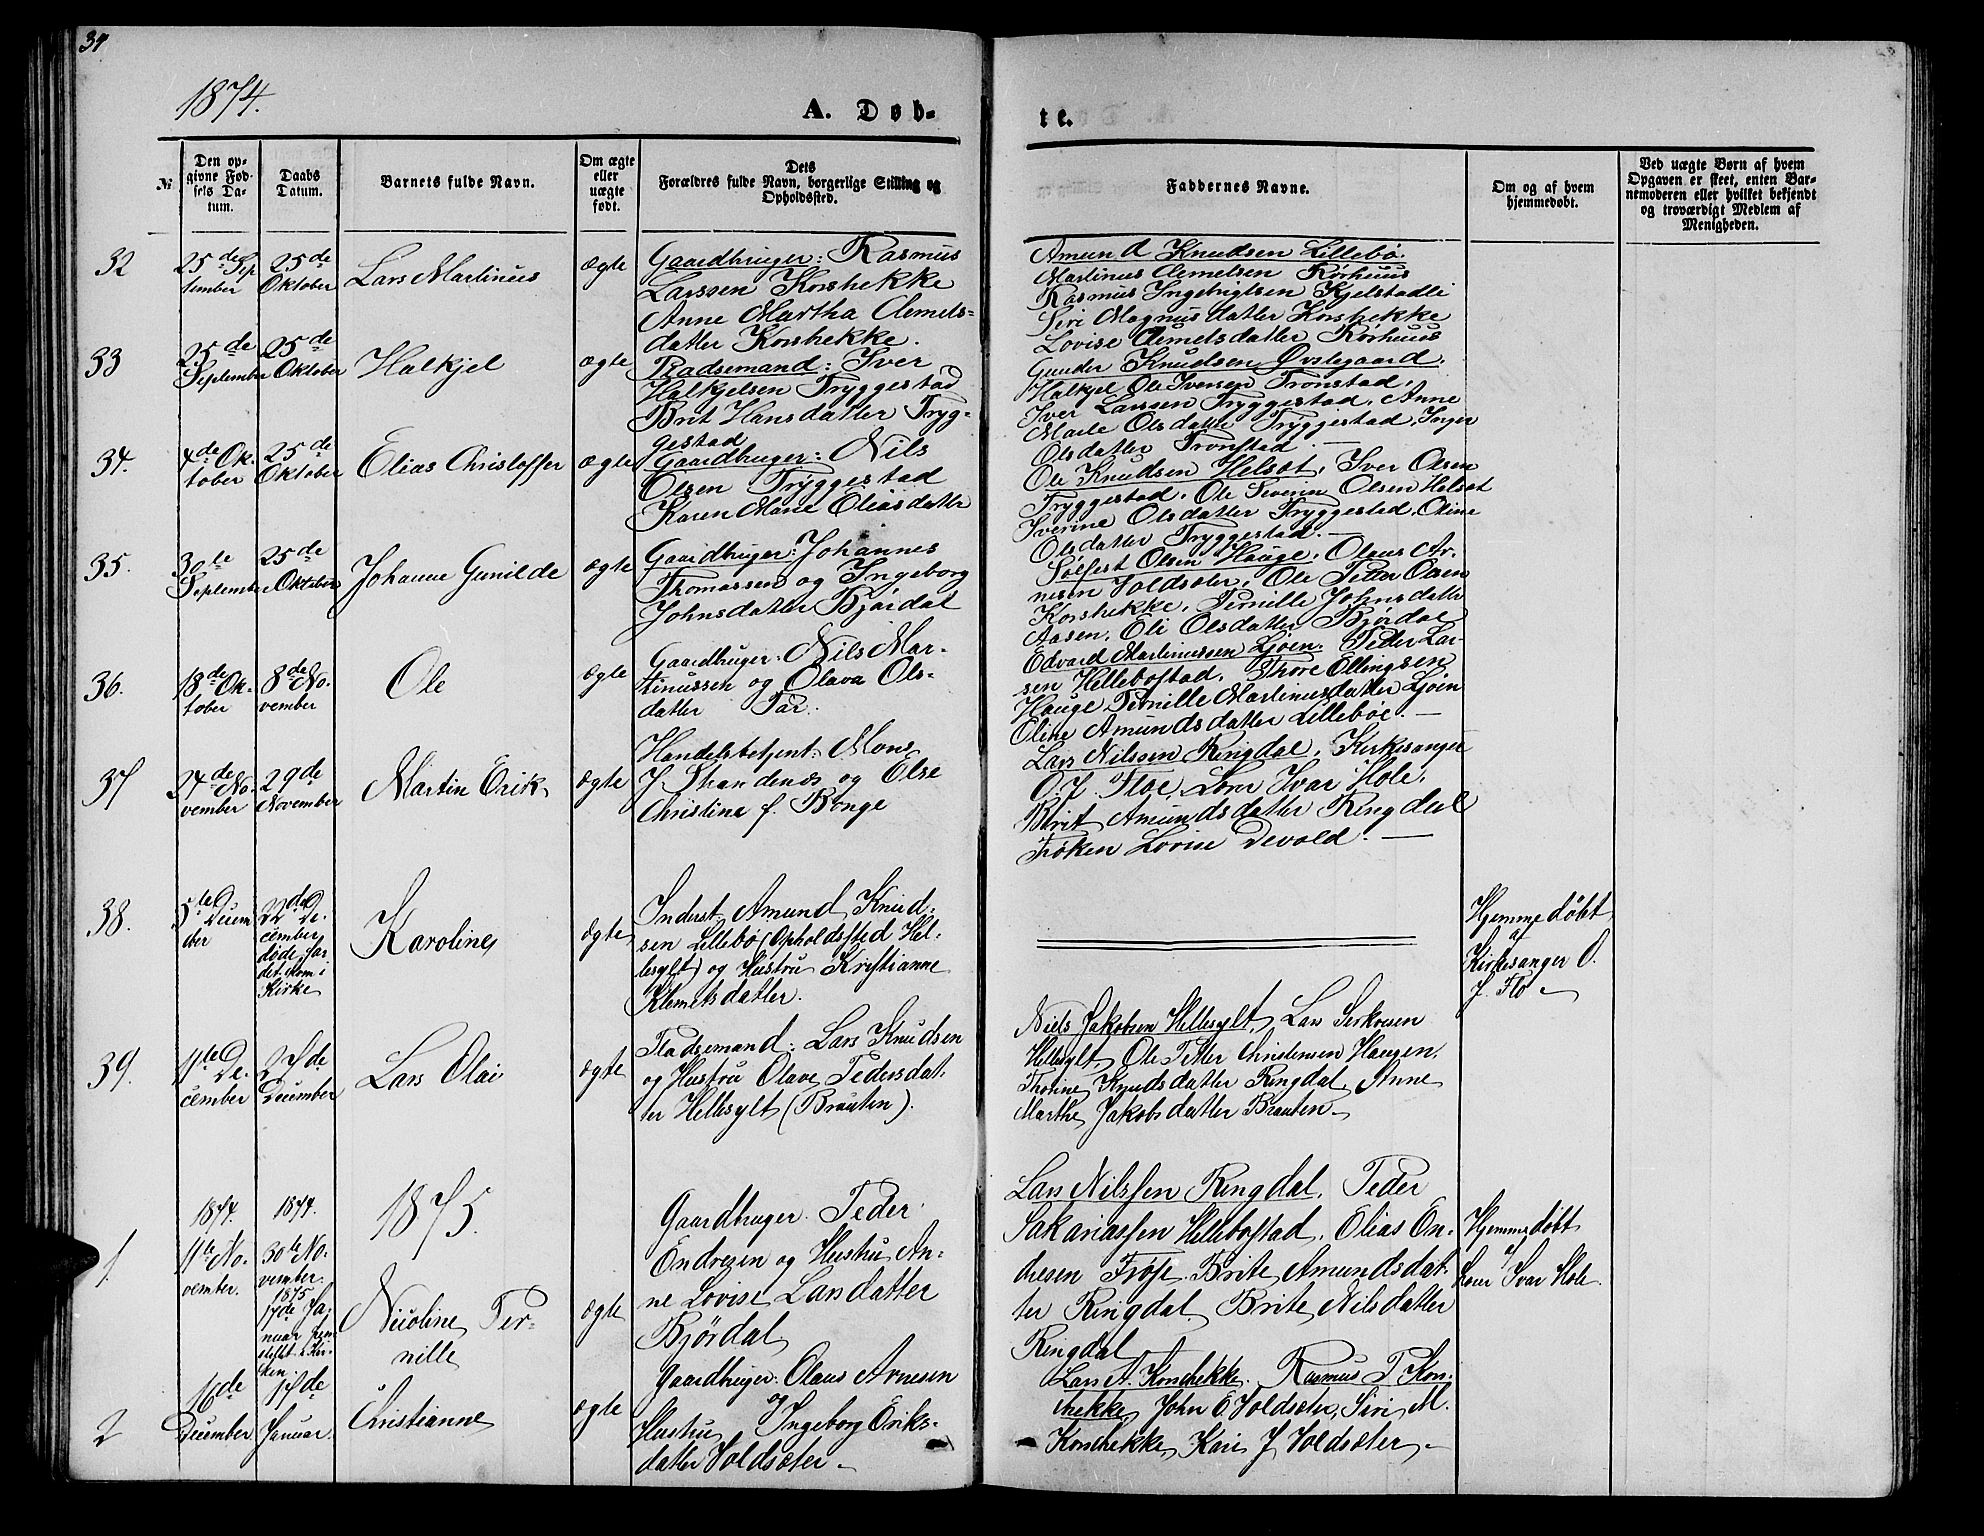 34
1874.
A. Døb-
te.
№
Den op-
givne Fød-
sels Da-
tum.
Daabs
Datum.
Barnets fulde Navn.
Om ægte
eller
uægte
født.
Dets
Forældres fulde Navn, borgerlige Stilling og
Opholdssted.
Faddernes Navne.
Om og af hvem
hjemmedøbt.
Ved uægte Børn af hvem
Opgaven er skeet, enten Bar-
nemoderen eller hvilket bekjendt
og troværdigt Medlem af
Menigheden.
32
25de Sep
tember
25de
Oktober
Lars Martinus
ægte
Gaardbruger: Rasmus
Larssen Korshekke
Anne Martha Clemets=
datter Korshekke.
Amund Knudsen Lillebø.
Martinus Clemetsen Rørhuus
Rasmus Ingebrigtsen Kjelstadli
Siri Magnusdatter Korshekke
Lovise Clemetsdatter Rørhuus
33
25de
September
25de
Oktober
Halkjel
ægte
Pladsemand: Iver
Halkjelsen Tryggestad
Brit Hansdatter Tryg-
gestad
Gunder Knudsen Øvstegaard.
Halkjel Ole Iversen Tronstad.
Iver Larssen Tryggestad. Anne
Marie Olsdatter Tryggestad, Inger
Olsdatter Tronstad. —
34.
4de Ok-
tober
25de
Oktober
Elias Christoffer
ægte
Gaardbruger: Nils
Olsen Tryggestad
Karen Marie Eliasdatter
Ole Knudsen Helset, Iver Olsen
Tryggestad. Ole Severin Olsen Helset
Iverine Olsdatter Tryggestad. Oline
Olsdatter Tryggestad. —
35.
30te
September
25de
Oktober
Johanne Gunilde
ægte
Gaardbruger: Johannes
Thomassen og Ingeborg
Johnsdatter Bjørdal
Sølfest Olsen Hauge, Olaus Ar-
nesen Voldsæter, Ole Petter Olsen
Korshekke, Pernille Johnsdatter
Aasen. Eli Olsdatter Bjørdal
36.
18de Ok-
tober
8de No-
vember
Ole
ægte
Gaardbruger: Nils Mar-
tinussen og Olava Ols-
datter
Edvard Martinussen Ljøen. Peder Lar-
sen Hellebostad, Thore Ellingsen
Hauge, Pernille Martinusdatter Ljøen
Oline Amundsdatter Lillebøe. —
37
24de No-
vember
29de
November
Martin Erik
ægte
Handelsbetjent: Mons
J. Strandenæs og Else
Christina f. Bonge
Lars Nilssen Ringdal, Kirkesanger
O. J. Floe, Lærer Ivar Hole,
Berit Amundsdatter Ringdal
Frøken Lovise Devold. —
38.
5te Decem
ber
22de De-
cember
døde før
det kom i
Kirke
Karoline
ægte
Inderst Amund Knud-
sen Lillebø (Opholdssted Hel-
lesylt) og Hustru Kristianne
Klemetsdatter.
Hjemmedøbt
af
Kirkesanger O.
J. Flo
39.
11te De-
cember
27de
December
Lars Olai
ægte
Pladsemand: Lars Knudsen
og Hustru Olave Pedersdat-
ter Hellesylt (Brauten).
Niels Jakobsen Hellesylt, Lars
Hellesylt, Ole Petter Christensen Haugen,
Thorine Knudsdatter Ringdal, Anne
Marthe Jakobsdatter Brauten
1875.
1.
1874.
11te No-
vember.
1874.
30te No-
vember.
1875
17de Ja-
nuar frem
stillet i Kir-
ken
Nicoline Per-
nille
ægte
Gaardbruger Peder
Endresen og Hustru An-
ne Lovise Larsdatter
Bjørdal
Lars Nilssen Ringdal, Peder
Sakariassen Hellebostad, Elias En-
dresen Frøse. Brite Amundsdat-
ter Ringdal, Brite Nilsdatter
Ringdal
Hjemmedøbt
Lærer Ivar Hole.
2
16de
December
17de
Januar.
Christianne
ægte
Gaardbruger: Olaus Arnesen
og
Hustru Ingeborg Eriks-
datter Voldsæter
Lars A. Korshekke. Rasmus P. Kors-
hekke, John E. Voldsæter, Siri M.
Korshekke, Kari J. Voldsæter,